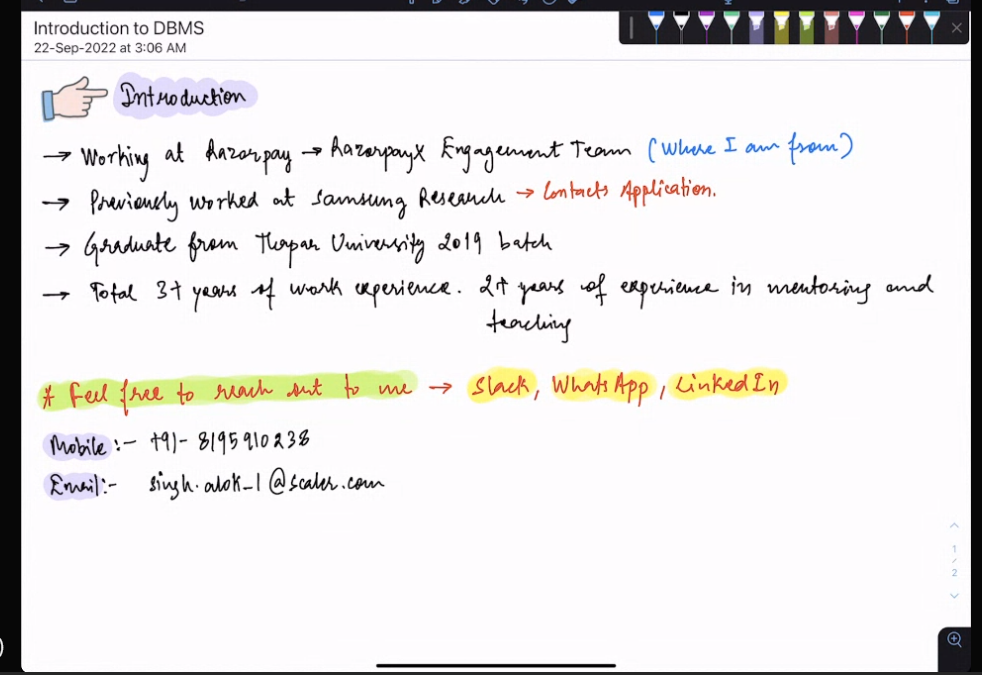 Introduction to DBMS
22-Sep-2022 at 3:06 AM
Introduction
→ Working at Razorpay → RazorpayX Engagement Team (Where I am from)
→ Previously worked at Samsung Research → Contacts Application.
→ Graduate from Thapar University 2019 batch
→ Total 3+ years of work experience. 2+ years of experience in mentoring and
teaching
* Feel free to reach out to me → Slack, WhatsApp, LinkedIn
Mobile :- +91- 8195910238
Email:- singh.alok_1@scaler.com
1
/
2